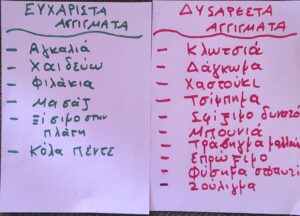 ΕΥΧΑΡΙΣΤΑ
ΑΓΓΙΓΜΑΤΑ
– Αγκαλιά
– Χαιδεύω
– Φιλάκια
– Μασάζ
– Ξίσιμο στην
πλάτη
– Κόλα πέντε
ΔΥΣΑΡΕΣΤΑ
ΑΓΓΙΓΜΑΤΑ
– Κλωτσιά
– Δάγκωμα
– Χαστούκι
– Τσίμπημα
– Σφίξιμο δυνατό
– Μπουνιά
– Τράβηγμα μαλλιών
– Σπρώξιμο
– Φύσημα στο αυτί
– Ζούλιγμα